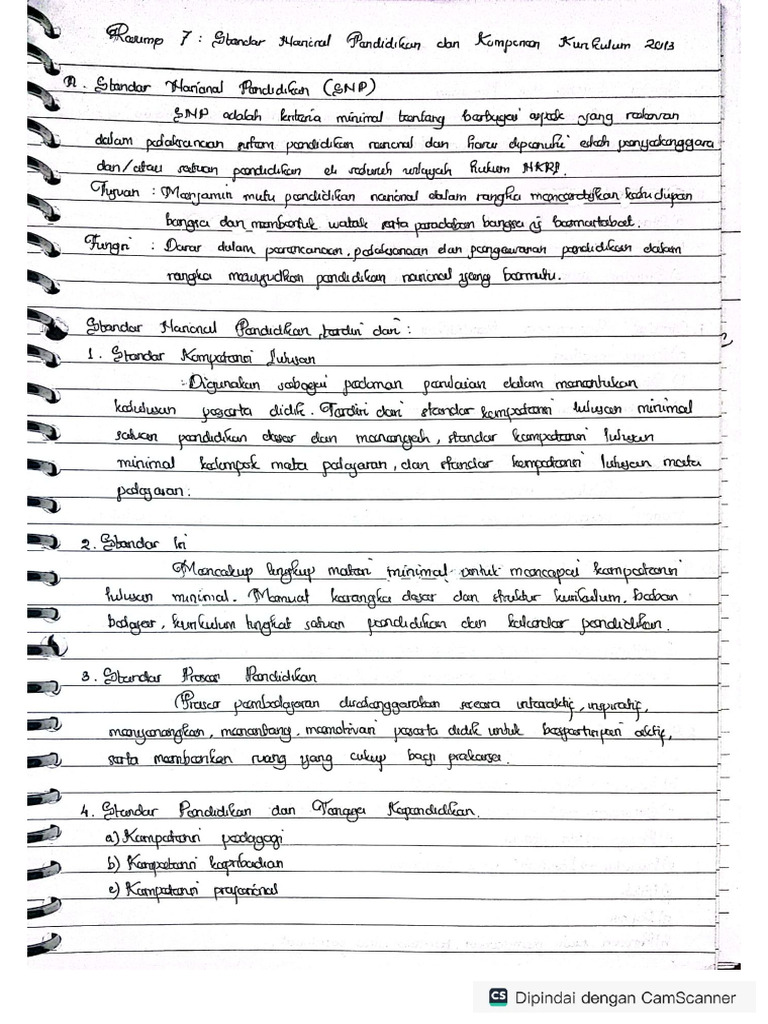 Resume 7 : Standar Nasional Pendidikan dan Komponen Kurikulum 2013
A. Standar Nasional Pendidikan (SNP)
SNP adalah kriteria minimal tentang berbagai aspek yang relevan
dalam pelaksanaan sistem pendidikan nasional dan harus dipenuhi oleh penyelenggara
dan/atau satuan pendidikan di seluruh wilayah hukum NKRI.
Tujuan : Menjamin mutu pendidikan nasional dalam rangka mencerdaskan kehidupan
bangsa dan membentuk watak serta peradaban bangsa yg bermartabat.
Fungsi : Dasar dalam perencanaan, pelaksanaan dan pengawasan pendidikan dalam
rangka mewujudkan pendidikan nasional yang bermutu.
Standar Nasional Pendidikan terdiri dari :
1. Standar Kompetensi Lulusan
Digunakan sebagai pedoman penilaian dalam menentukan
kelulusan peserta didik. Terdiri dari standar kompetensi lulusan minimal
satuan pendidikan dasar dan menengah, standar kompetensi lulusan
minimal kelompok mata pelajaran, dan standar kompetensi lulusan mata
pelajaran.
2. Standar Isi
Mencakup lingkup materi minimal untuk mencapai kompetensi
lulusan minimal. Memuat kerangka dasar dan struktur kurikulum, beban
belajar, kurikulum tingkat satuan pendidikan dan kalender pendidikan.
3. Standar Proses Pendidikan
Proses pembelajaran diselenggarakan secara interaktif, inspiratif,
menyenangkan, menantang, memotivasi peserta didik untuk berpartisipasi aktif,
serta memberikan ruang yang cukup bagi prakarsa.
4. Standar Pendidikan dan Tenaga Kependidikan.
a) Kompetensi pedagogi
b) Kompetensi kepribadian
c) Kompetensi profesional
CS Dipindai dengan CamScanner